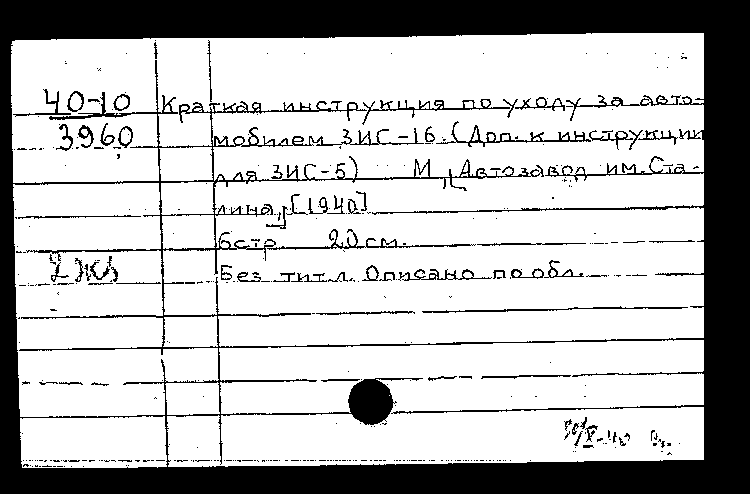 40-10 Краткая инструкция по уходу за авто-
3960 мобилем ЗИС-16. (Доп. к инструкции
для ЗИС-5) М., Автозавод им. Ста-
лина, [1940]
6стр. 20см.
2 экз Без тит. л. Описано по обл.